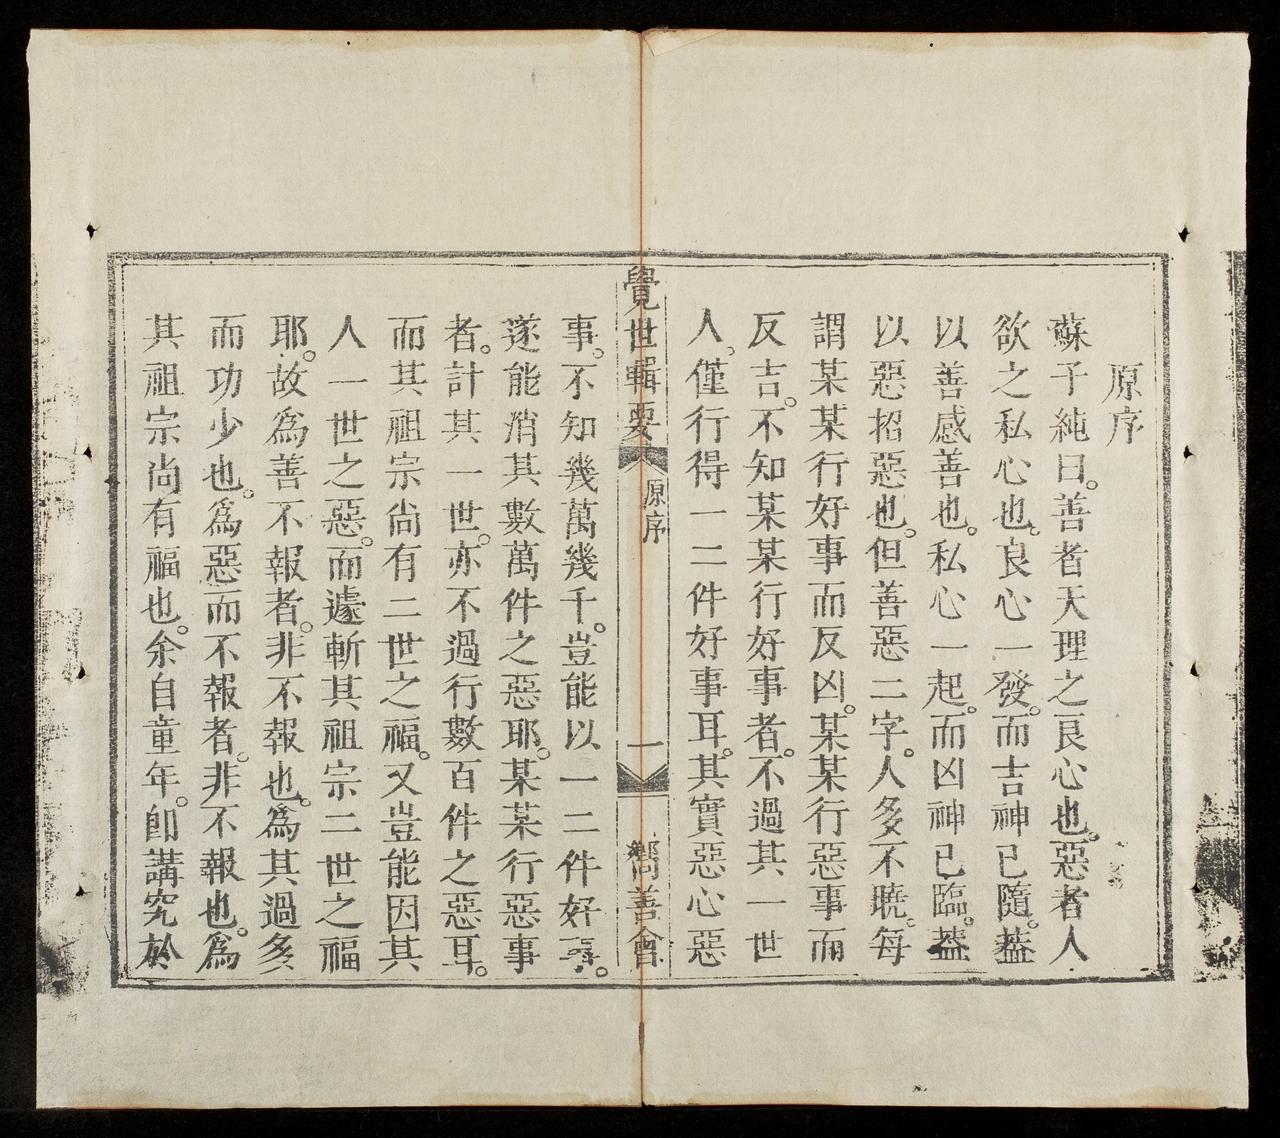 原序
蘇子純曰。善者天理之良心也。惡者人
欲之私心也。良心一發。而吉神已隨。蓋
以善感善也。私心一起。而凶神已臨。蓋
以惡招惡也。但善惡二字。人多不曉。每
謂某某行好事而反凶。某某行惡事而
反吉。不知某某行好事者。不過其一世
人。僅行得一二件好事耳。其實惡心惡
覺世輯要
原序
一
鄉善會
事。不知幾萬幾千。豈能以一二件好事。
遂能消其數萬件之惡耶。某某行惡事
者。計其一世。亦不過行數百件之惡耳。
而其祖宗尙有二世之福。又豈能因其
人一世之惡。而遽斬其祖宗二世之福
耶。故爲善不報者。非不報也。爲其過多
而功少也。爲惡而不報者。非不報也。爲
其祖宗尙有福也。余自童年。卽講究於